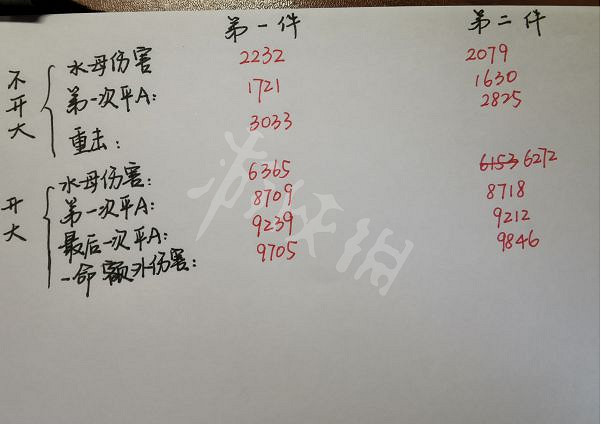 第一件 第二件
不开大
水母伤害 2232 2079
第一次平A: 1721 1630
重击: 3033 2825
开大
水母伤害: 6365 6153 6272
第一次平A: 8709 8718
最后一次平A: 9239 9212
一命额外伤害: 9705 9846